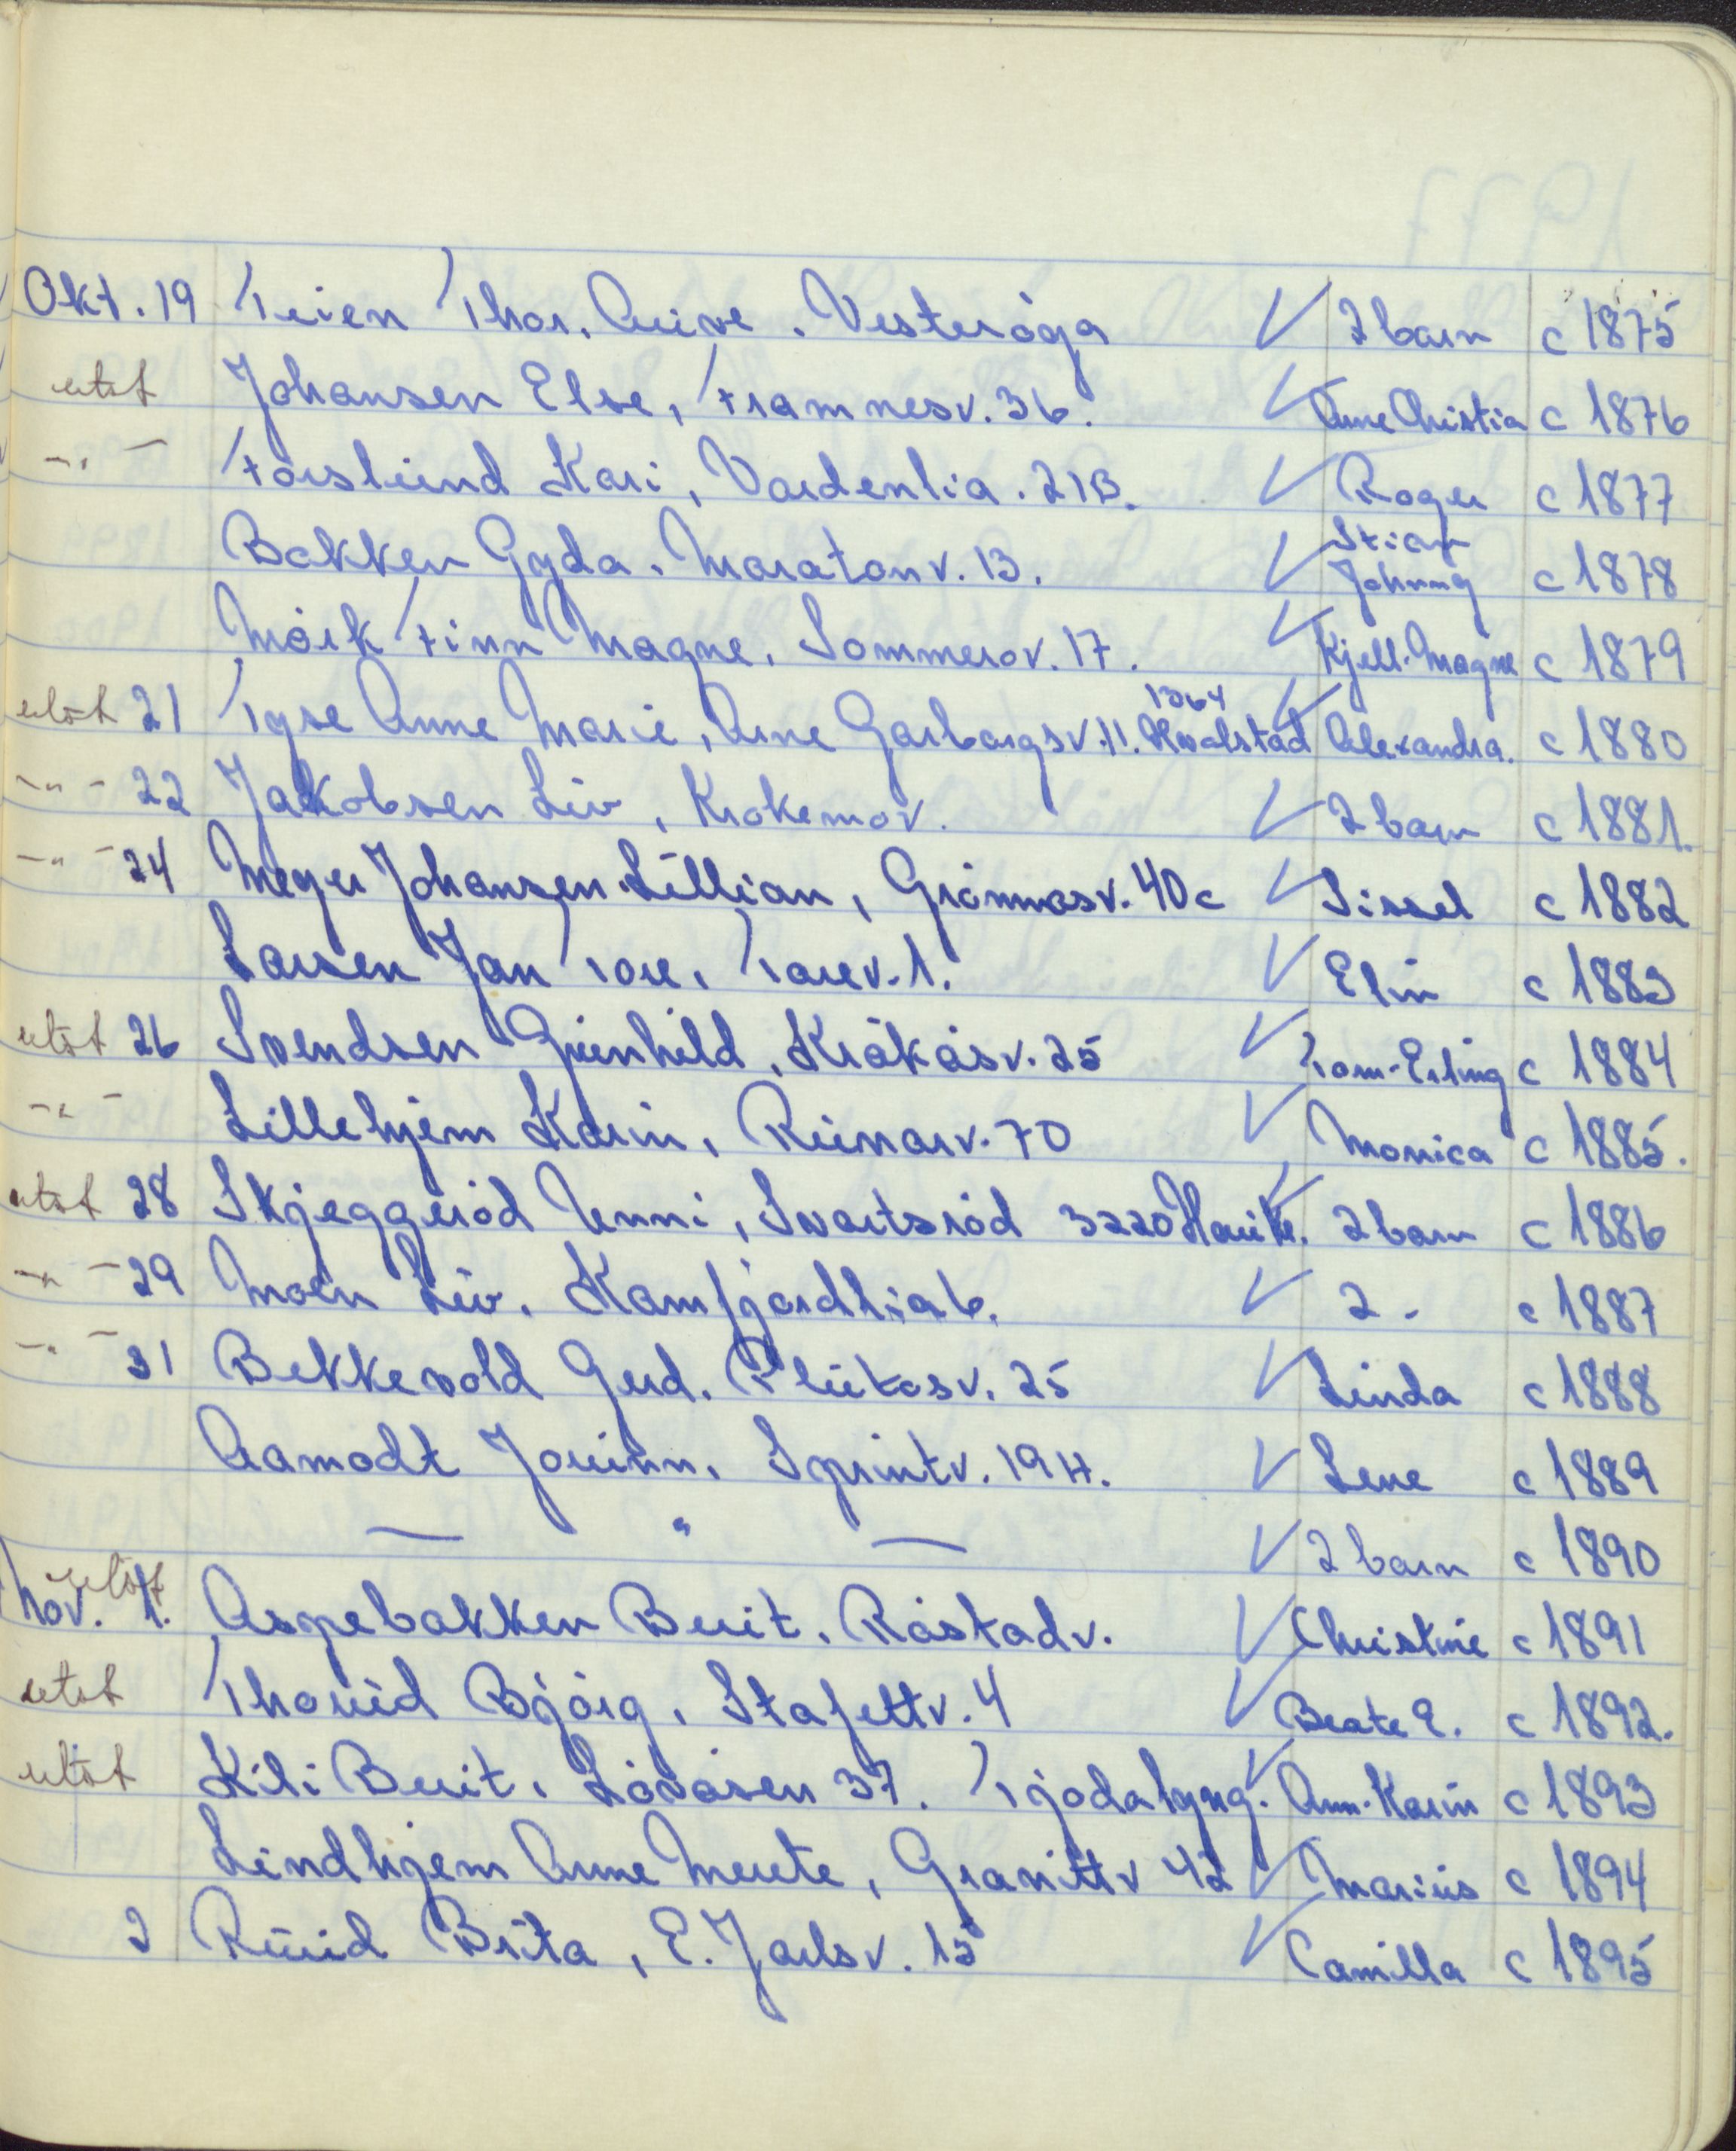 Okt. 19 Teien Thor. Auive. Vesterøya ✓ 2 barn c 1875
utøt Johansen Else, Framnesv. 36. ✓ Anne Christia c 1876
-"- Forslund Kari, Vardenlia. 21B. ✓ Roger c 1877
Bakken Gyda. Maratonv. 13. ✓ Stian Johnny c 1878
Mørk Finn Magne. Sommerov. 17. ✓ Kjell-Magne c 1879
utøt 21 Tyse Anne Marie, Arne Garborgsv. 11. 1364 Hvalstad ✓ Alexandra. c 1880
-"- 22 Jakobsen Liv, Krokemov. ✓ 2 barn c 1881.
-"- 24 Meyer Johansen Lillian, Grønnåsv. 40c ✓ Sissel c 1882
Larsen Jan Tore, Torev. 1. ✓ Elin c 1883
utøt 26 Svendsen Gunhild, Kråkåsv. 25 ✓ Tom-Erling c 1884
-"- Lillehjem Karin, Runarv. 70 ✓ Monica c 1885.
utøt 28 Skjeggerød Unni, Svartsrød 3220 ✓ 2 barn c 1886
-"- 29 Moen Liv. Kamfjordlia 6. ✓ 2 - c 1887
-"- 31 Bekkevold Gerd. Plutosv. 25 ✓ Linda c 1888
Aamodt Jorunn. Sprintv. 19 H. ✓ Lene c 1889
— " — ✓ 2 barn c 1890
Nov. 1. utøt Aspebakken Berit. Råstadv. ✓ Christine c 1891
utøt Thorud Bjørg. Stafettv. 4 ✓ Beate E. c 1892.
utøt Kili Berit. Lövåsen 37. Tjodalyng. ✓ Ann-Karin c 1893
Lindhjem Anne Merete, Granittv 42 ✓ Marius c 1894
2 Ruud Brita, E. Jarlsv. 15 ✓ Camilla c 1895